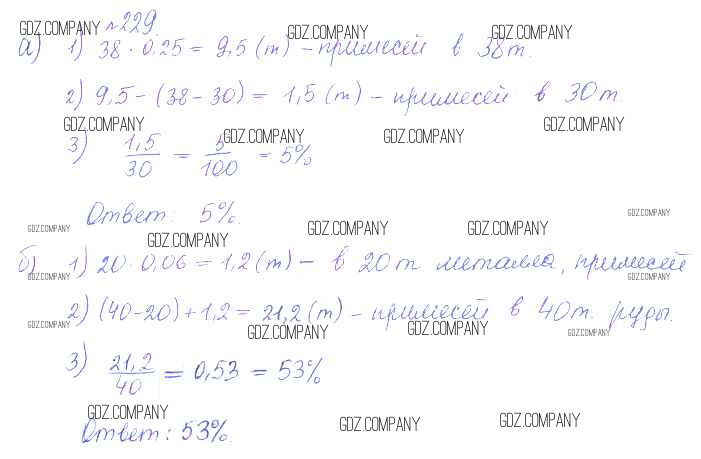 №229.
GDZ.COMPANY GDZ.COMPANY GDZ.COMPANY
а) 1) 38 · 0,25 = 9,5 (т) – примесей в 38т.
2) 9,5 – (38 – 30) = 1,5 (т) – примесей в 30т.
GDZ.COMPANY GDZ.COMPANY GDZ.COMPANY GDZ.COMPANY
3) 1,5/30 = 5/100 = 5%
Ответ: 5%.
GDZ.COMPANY GDZ.COMPANY GDZ.COMPANY GDZ.COMPANY GDZ.COMPANY
б) 1) 20 · 0,06 = 1,2 (т) – в 20т металла, примесей
GDZ.COMPANY GDZ.COMPANY
2) (40–20) + 1,2 = 21,2 (т) – примесей в 40т. руды.
GDZ.COMPANY GDZ.COMPANY GDZ.COMPANY GDZ.COMPANY
3) 21,2/40 = 0,53 = 53%
GDZ.COMPANY GDZ.COMPANY GDZ.COMPANY
Ответ: 53%.